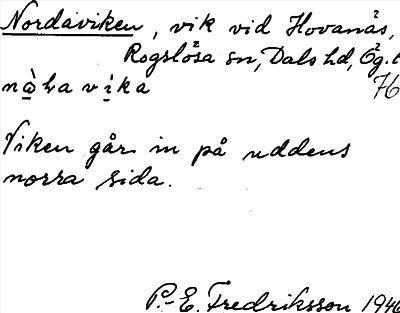 Nordaviken, vik vid Hovanäs,
Rogslösa sn, Dals hd, Ög.l
76
Viken går in på uddens
norra sida.
P.-E. Fredriksson 1946